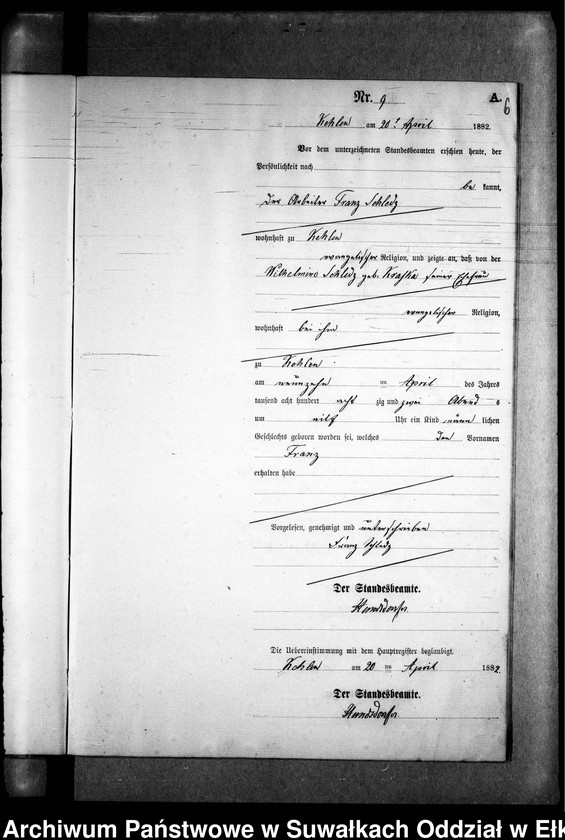 Nr. 9 A.
6
Kehlen am 20t April 1882.
Vor dem unterzeichneten Standesbeamten erschien heute, der
Persönlichkeit nach
be kannt,
der Arbeiter Franz Schledz
wohnhaft zu Kehlen
evangelischer Religion, und zeigte an, daß von der
Wilhelmine Schledz geb. Krafka seiner Ehefrau
evangelischer Religion,
wohnhaft bei ihm
zu Kehlen
am neunzehn ten April des Jahres
tausend acht hundert acht zig und zwei Abend s
um eilf Uhr ein Kind männ lichen
Geschlechts geboren worden sei, welches den Vornamen
Franz
erhalten habe
Vorgelesen, genehmigt und unterschrieben
Franz Schledz
Der Standesbeamte.
Die Uebereinstimmung mit dem Hauptregister beglaubigt.
Kehlen am 20 ten April 1882.
Der Standesbeamte.
Archiwum Państwowe w Suwałkach Oddział w Ełk